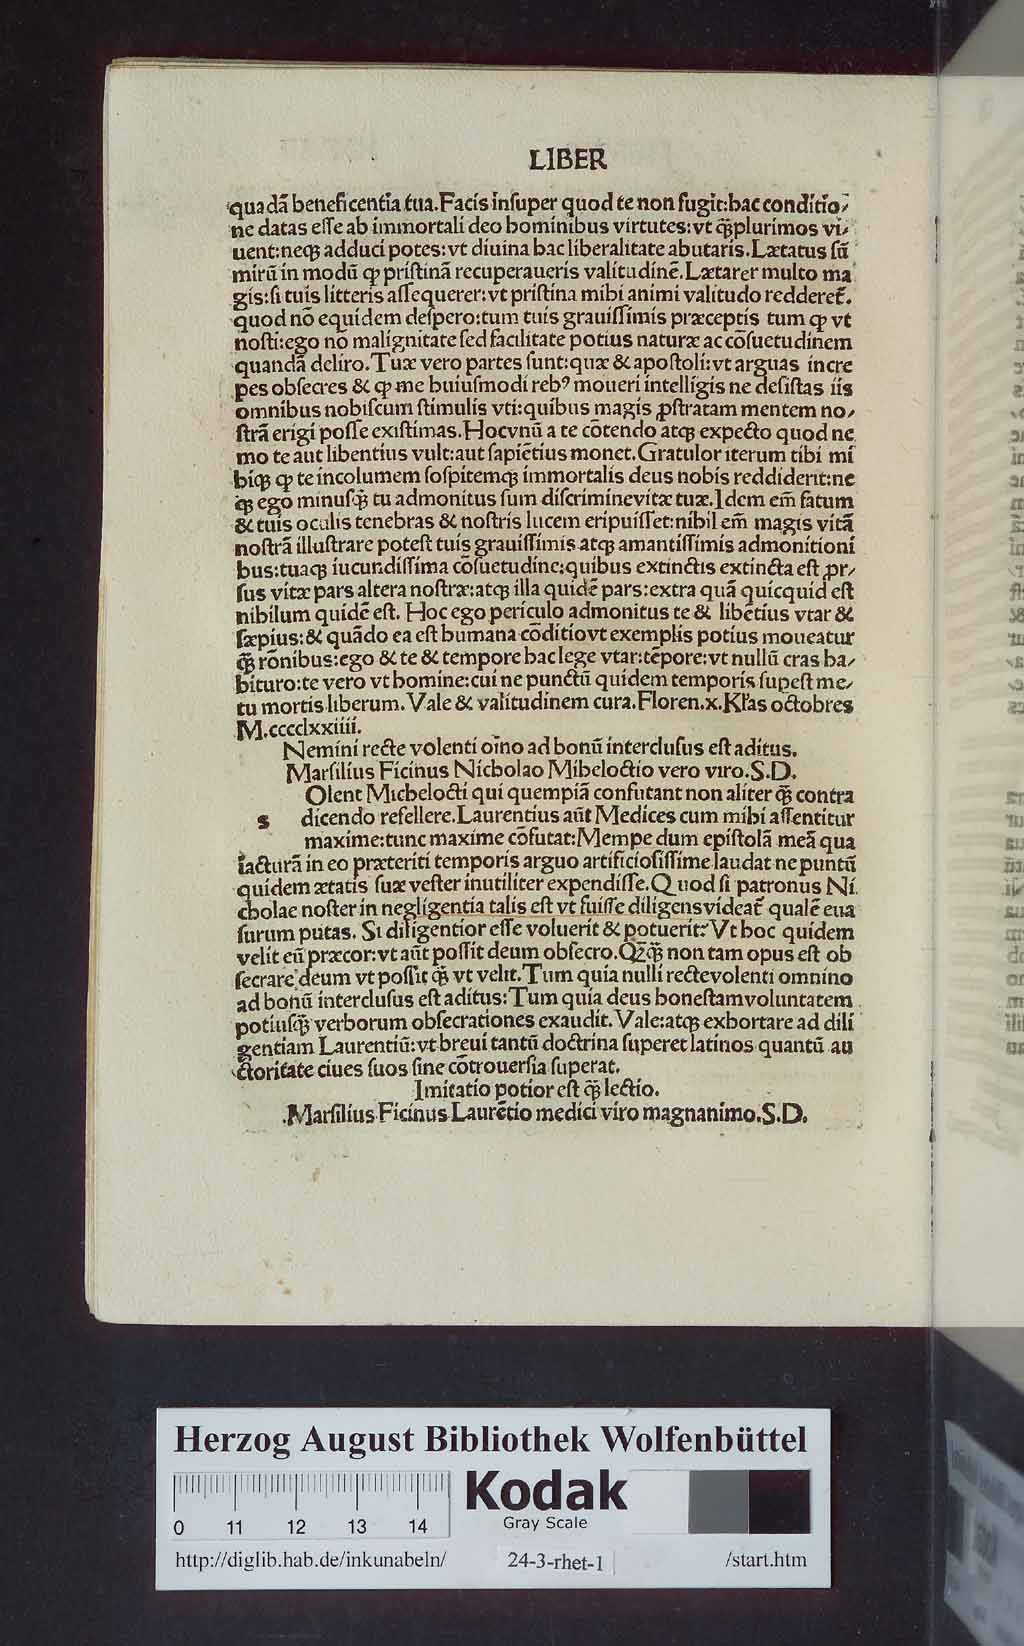 LIBER
quadã beneficentia tua.Facis insuper quod te non fugit:hac conditio⸗
ne datas esse ab immortali deo hominibus virtutes:vt ꝙ̃plurimos vi⸗
uent:neqꝫ adduci potes:vt diuina hac liberalitate abutaris.Lætatus sũ
mirũ in modũ ꝙ pristinã recuperaueris valitudinẽ.Lætarer multo ma
gis:si tuis litteris assequerer:vt pristina mihi animi valitudo redderet̃.
quod nõ equidem despero:tum tuis grauissimis præceptis tum ꝙ vt
nosti:ego nõ malignitate sed facilitate potius naturæ ac cõsuetudinem
quandã deliro.Tuæ vero partes sunt:quæ & apostoli:vt arguas incre
pes obsecres & ꝙ me huiusmodi rebꝰ moueri intelligis ne desistas iis
omnibus nobiscum stimulis vti:quibus magis ꝓstratam mentem no⸗
strã erigi posse existimas.Hocvnũ a te cõtendo atqꝫ expecto quod ne
mo te aut libentius vult:aut sapiẽtius monet.Gratulor iterum tibi mi
hiqꝫ ꝙ te incolumem sospitemqꝫ immortalis deus nobis reddiderit:ne
qꝫ ego minusꝙ̃ tu admonitus sum discriminevitæ tuæ.Idem em̃ fatum
& tuis oculis tenebras & nostris lucem eripuisset:nihil em̃ magis vitã
nostrã illustrare potest tuis grauissimis atqꝫ amantissimis admonitioni
bus:tuaqꝫ iucundissima cõsuetudine:quibus extinctis extincta est ꝓr⸗
sus vitæ pars altera nostræ:atqꝫ illa quidẽ pars:extra quã quicquid est
nihilum quidẽ est. Hoc ego periculo admonitus te & libẽtius vtar &
sæpius:& quãdo ea est humana cõditiovt exemplis potius moueatur
ꝙ̃ rõnibus:ego & te & tempore hac lege vtar:tẽpore:vt nullũ cras ha⸗
bituro:te vero vt homine:cui ne punctũ quidem temporis supest me⸗
tu mortis liberum. Vale & valitudinem cura. Floren.x.Kl̃as octobres
M.cccclxxiiii.
Nemini recte volenti oĩno ad bonũ interclusus est aditus.
Marsilius Ficinus Nicholao Miheloctio vero viro.S.D.
Olent Michelocti qui quempiã confutant non aliter ꝙ̃ contra
s dicendo refellere.Laurentius aũt Medices cum mihi assentitur
maxime:tunc maxime cõfutat:Mempe dum epistolã meã qua
iacturã in eo præteriti temporis arguo artificiosissime laudat ne puntũ
quidem ætatis suæ vester inutiliter expendisse.Quod si patronus Ni
cholae noster in negligentia talis est vt fuisse diligensvideat̃ qualẽ eua
surum putas. Si diligentior esse voluerit & potuerit?Vt hoc quidem
velit eũ præcor:vt aũt possit deum obsecro.Qꝫꝙ̃ non tam opus est ob
secrare deum vt possit ꝙ̃ vt velit.Tum quia nulli rectevolenti omnino
ad bonũ interclusus est aditus:Tum quia deus honestamvoluntatem
potiusꝙ̃ verborum obsecrationes exaudit.Vale:atqꝫ exhortare ad dili
gentiam Laurentiũ:vt breui tantũ doctrina superet latinos quantũ au
ctoritate ciues suos sine cõtrouersia superat.
Imitatio potior est ꝙ̃ lectio.
.Marsilius Ficinus Laurẽtio medici viro magnanimo.S.D.
Herzog August Bibliothek Wolfenbüttel
Kodak
Gray Scale
0 11 12 13 14
http://diglib.hab.de/inkunabeln/ 24-3-rhet-1 /start.htm